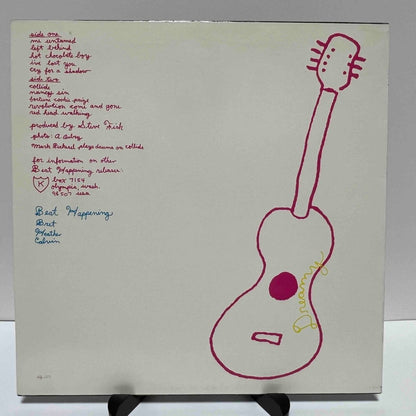 side one
me untamed
left behind
hot chocolate boy
i've lost you
cry for a shadow
side two
collide
nancy sin
fortune cookie prize
revolution come and gone
red head walking
produced by Steve Fisk
photo: A. Borg
Mark Pickerel plays drums on collide
for information on other
Beat Happening releases:
K
box 7154
olympia, wash.
98507 usa
Beat Happening
Bret
Heather
Calvin
Dreamy